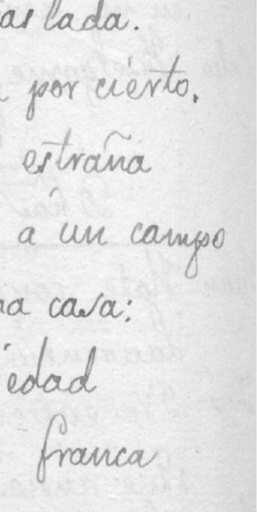 aslada.
por cierto.
estraña
á un campo
na casa:
iedad
franca